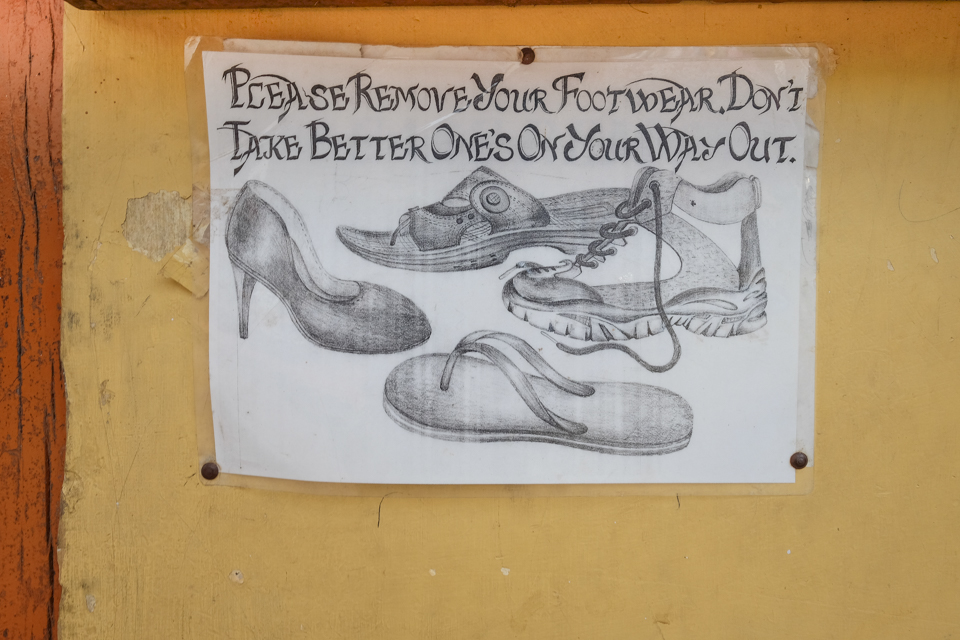 Please Remove Your Footwear. Don't
Take Better One's On Your Way Out.